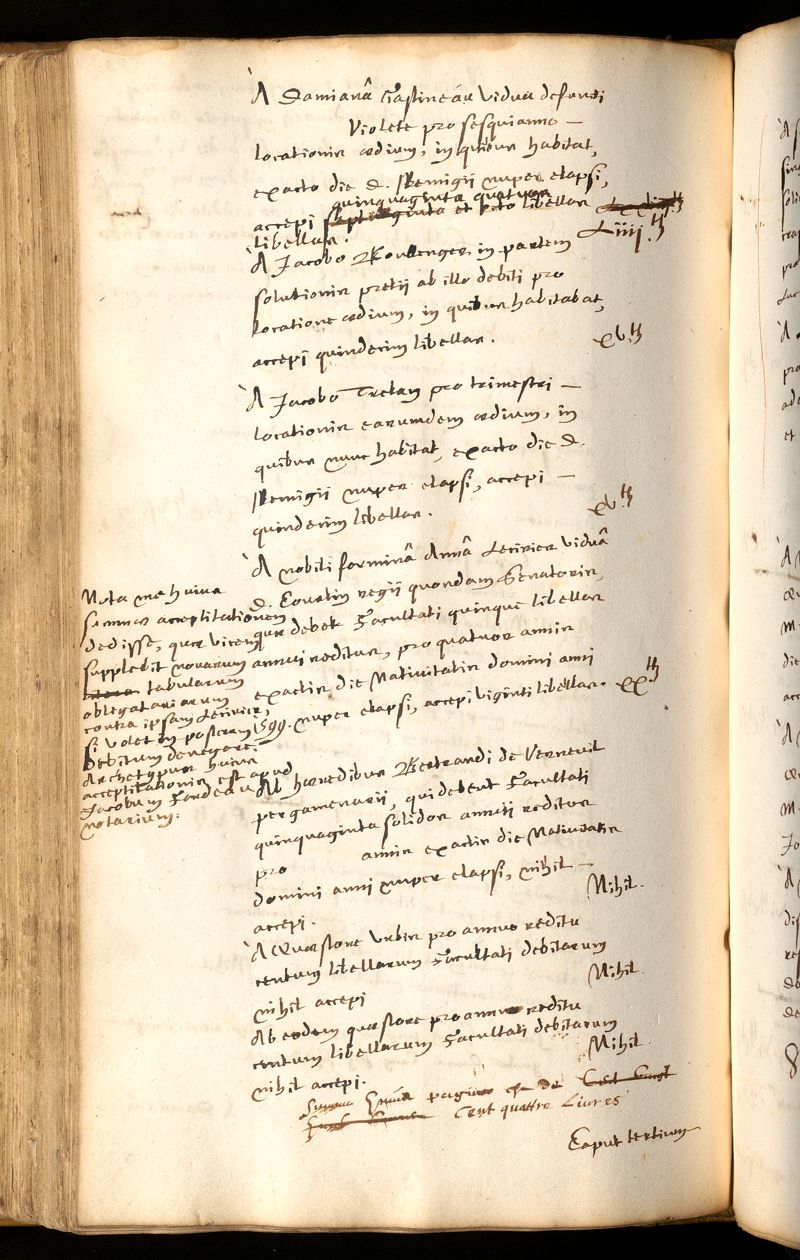 A Damianâ Gastineau vidua defuncti
Violete pro sesquianno —
locationis ædium, in quibus habitat,
exacto die D. Remigii nuper elapsi,
quinquaginta quatuor
accepi septuaginta et octo libellas
libellas. Liiij.tt
A Jacobo Boullenger in partem
solutionis pretii ab illo debiti pro
locatione ædium, in quibus habitabat,
accepi quindecim libellas. xv.tt
A Jacobo Tretan pro trimestri —
locationis earumdem ædium, in
quibus nunc habitat, exacto die D.
Remigii nuper elapsi, accepi —
quindecim libellas. xv.tt
A nobili fœminâ Annâ viduâ
D. Courtin regii quondam Senatoris,
quæ debet Facultati quinque libellas
annui reditus, pro quatuor annis
exactis die Nativitatis domini anni
1599. nuper elapsi, accepi viginti libellas. xx.tt
Nota me huius
summæ acceptilationem
dedisse, quæ vicem
suppledit novarum
tabularum
obligatariarum
contra ipsam
si volet in posterum
debitum denegare.
Archetypus huius
acceptilationis est apud
Jacobum Fardeau
notarium.
Ab hæredibus Bertrandi de Verneuil
pergamenarii, qui debent Facultati
quinquaginta solidos annui reditus
pro annis exactis die Nativitatis
domini anni nuper elapsi, nihil —
accepi. Nihil.
A Quæstore urbis pro annuo reditu
centum libellarum Facultati debitarum
nihil accepi Nihil.
Ab eodem quæstore pro annuo reditu
centum libellarum Facultati debitarum
nihil accepi. Nihil.
Summa paginæ de
Cent quattre Livres
Caput tertium